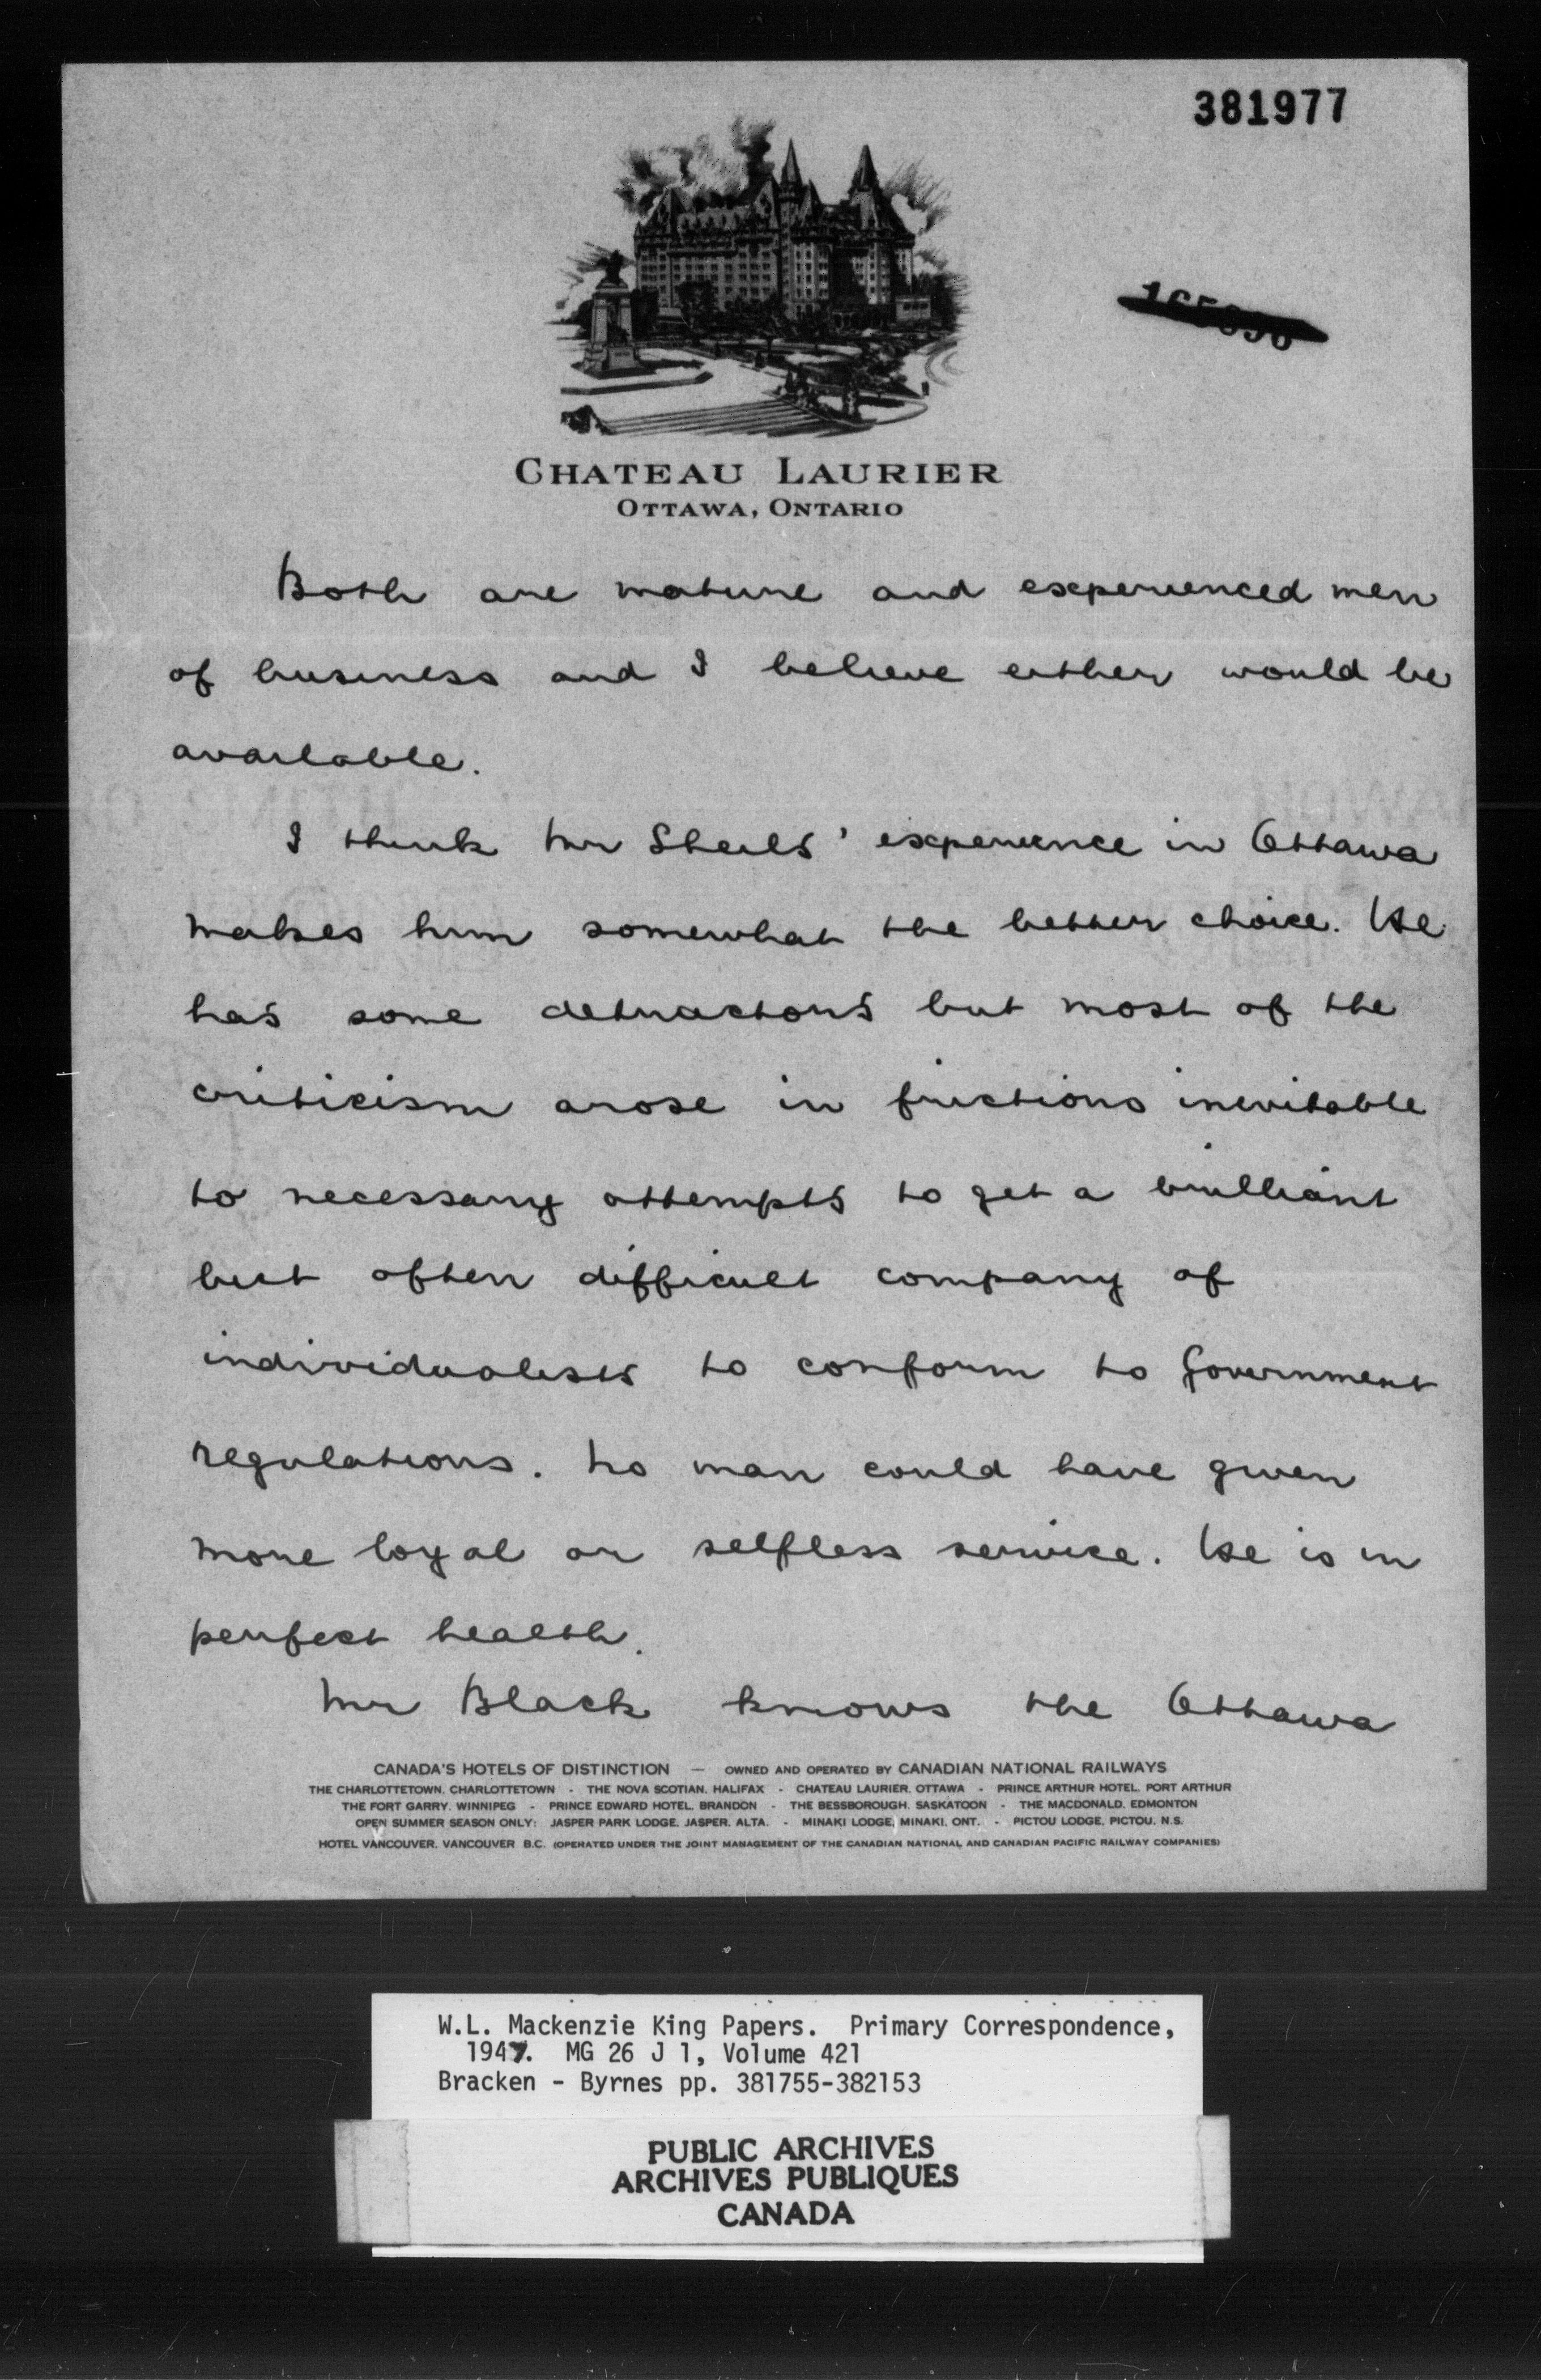 381977
CHATEAU LAURIER
OTTAWA, ONTARIO
Both are mature and experienced men
of business and I believe either would be
available.
I think Mr Sheils' experience in Ottawa
makes him somewhat the better choice. He
has some detractors but most of the
criticism arose in frictions inevitable
to necessary attempts to get a brilliant
but often difficult company of
individualists to conform to Government
regulations. No man could have given
more loyal or selfless service. He is in
perfect health.
Mr Black knows the Ottawa
CANADA'S HOTELS OF DISTINCTION — OWNED AND OPERATED BY CANADIAN NATIONAL RAILWAYS
THE CHARLOTTETOWN, CHARLOTTETOWN - THE NOVA SCOTIAN, HALIFAX - CHATEAU LAURIER, OTTAWA - PRINCE ARTHUR HOTEL, PORT ARTHUR
THE FORT GARRY, WINNIPEG - PRINCE EDWARD HOTEL, BRANDON - THE BESSBOROUGH, SASKATOON - THE MACDONALD, EDMONTON
OPEN SUMMER SEASON ONLY: JASPER PARK LODGE, JASPER, ALTA. - MINAKI LODGE, MINAKI, ONT. - PICTOU LODGE, PICTOU, N.S.
HOTEL VANCOUVER, VANCOUVER B.C. (OPERATED UNDER THE JOINT MANAGEMENT OF THE CANADIAN NATIONAL AND CANADIAN PACIFIC RAILWAY COMPANIES)
W.L. Mackenzie King Papers. Primary Correspondence,
1947. MG 26 J 1, Volume 421
Bracken - Byrnes pp. 381755-382153
PUBLIC ARCHIVES
ARCHIVES PUBLIQUES
CANADA